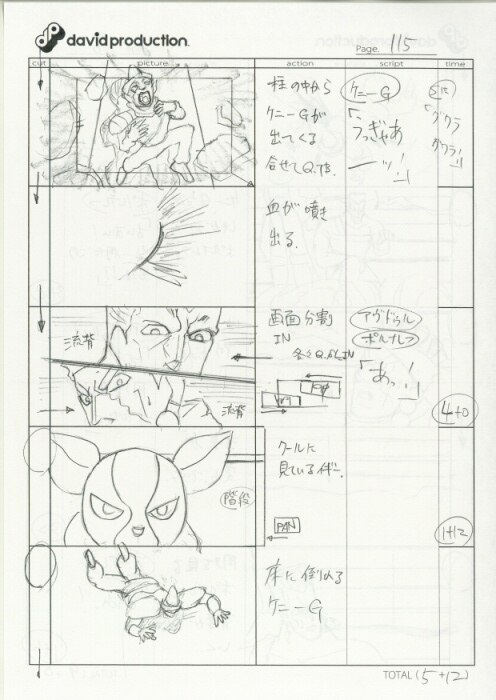 david production.
Page. 115
cut picture action script time
柱の中から
ケニーGが
出てくる
合せてQ.T.B.
ケニーG
「うっぎゃあ
ーッ!」
SE
「グワラ
ガワラ!」
血が噴き
出る.
流背
流背
画面分割
IN
各々Q.PAN IN
アヴドゥル
ポルナレフ
「あっ!」
4+0
クールに
見ているイギー.
階段
PAN
1+12
床に倒れる
ケニーG
TOTAL (5+12)